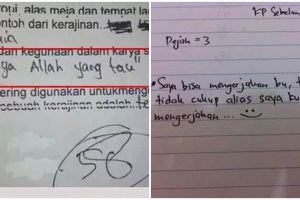 alas meja dan tempat la
ontoh dari kerajinan.
dari kegunaan dalam karya s
ga Allah yang tau"
ering digunakan untukmeng
sebuah kerajinan adalah
58
KP Sebelum
Pajak = 3
• Saya bisa mengerjakan bu, t
tidak cukup alias saya ku
mengerjakan ...